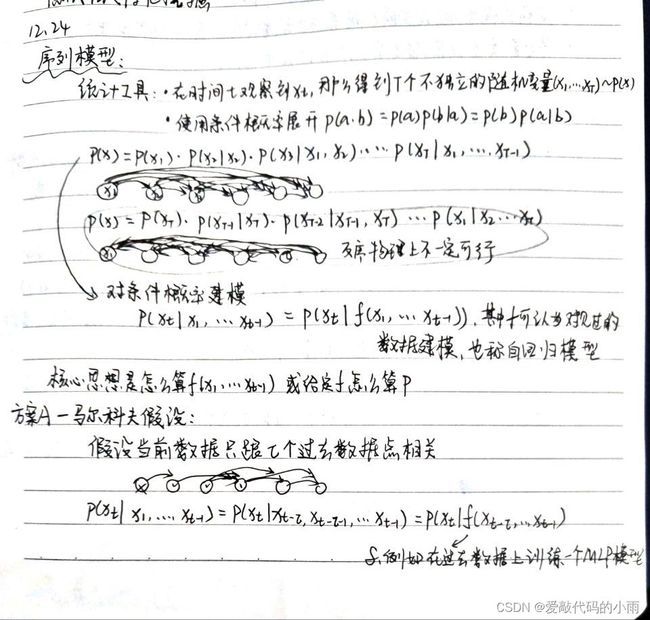 12.24
序列模型:
统计工具: ·在时间t观察到xt, 那么得到T个不独立的随机变量(x1,...xT)~p(x)
·使用条件概率展开 p(a.b) = p(a)p(b|a) = p(b)p(a|b)
p(x) = p(x1)·p(x2|x2)·p(x3|x1,x2)..... p(xT|x1,....xT-1)
p(x) = p(xT)·p(xT-1|xT)·p(xT-2|xT-1,xT) ... p(x1|x2...xt)
反序物理上不一定可行
对条件概率建模
p(xt|x1,...xt-1) = p(xt|f(x1,...xt-1)), 其中f可认为对见过的
数据建模, 也称自回归模型
核心思想是怎么算f(x1,...xt-1) 或给定f怎么算p
方案A-马尔科夫假设:
假设当前数据只跟τ个过去数据点相关
p(xt|x1,...xt-1) = p(xt|xt-τ,xt-τ-1,...xt-1) = p(xt|f(xt-τ,...xt-1)
f, 例如在过去数据上训练一个MLP模型
CSDN @爱敲代码的小雨